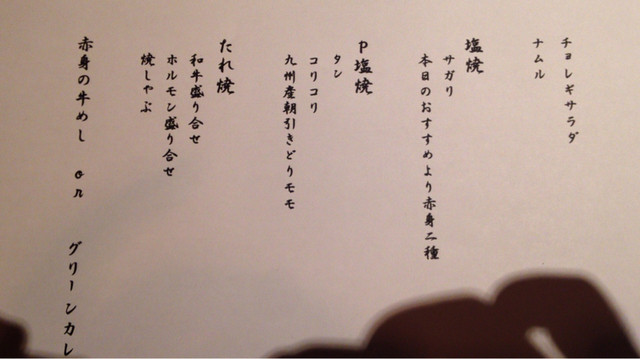 チョレギサラダ
ナムル
塩焼
サガリ
本日のおすすめより赤身二種
P塩焼
タン
コリコリ
九州産朝引きどりモモ
たれ焼
和牛盛り合せ
ホルモン盛り合せ
焼しゃぶ
赤身の牛めし or グリーンカレ